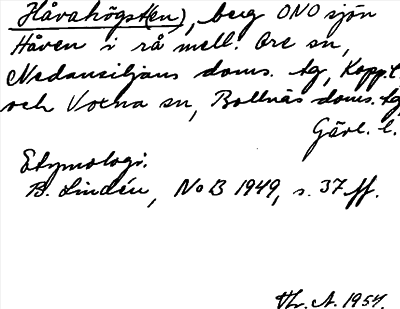 Håvahögst(en), berg ONO sjön
Håven i rå mell. Ore sn,
Nedansiljans doms. tg, Kopp. l.
och Voxna sn, Bollnäs doms. tg
Gävl. l.
Etymologi.
B. Lindén, NoB 1949, s. 37 ff.
Thr. A. 1954.